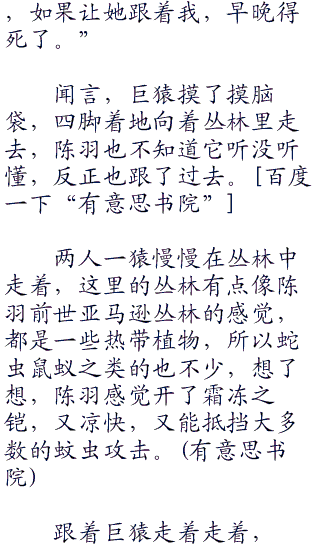 ，如果让她跟着我，早晚得
死了。”
闻言，巨猿摸了摸脑
袋，四脚着地向着丛林里走
去，陈羽也不知道它听没听
懂，反正也跟了过去。[百度
一下“有意思书院”]
两人一猿慢慢在丛林中
走着，这里的丛林有点像陈
羽前世亚马逊丛林的感觉，
都是一些热带植物，所以蛇
虫鼠蚁之类的也不少，想了
想，陈羽感觉开了霜冻之
铠，又凉快，又能抵挡大多
数的蚊虫攻击。(有意思书
院)
跟着巨猿走着走着，